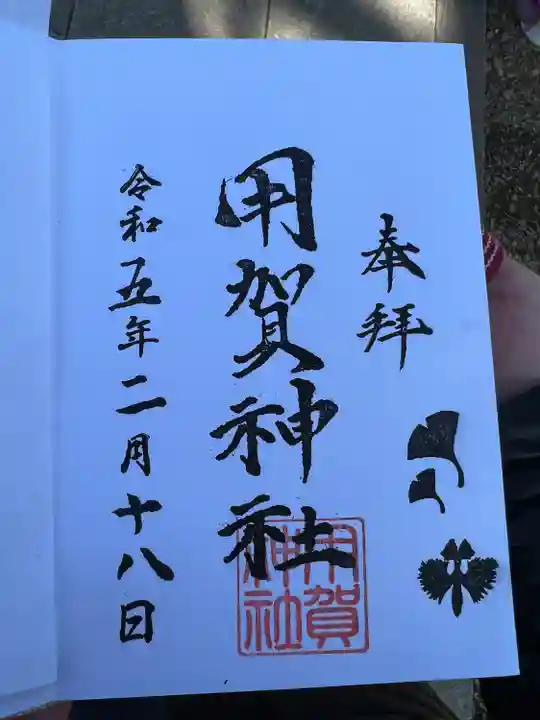 奉拝
用賀神社
用賀神社
令和五年二月十八日